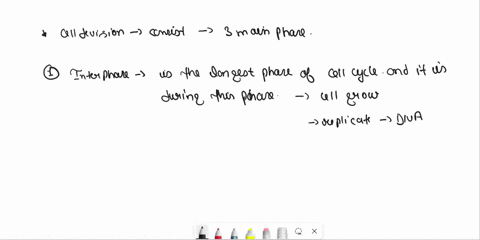 * Cell devission → consist → 3 main phase.
① Interphase → is the longest phase of cell cycle and it is
during this phase. → cell grow
→ replicate → DNA